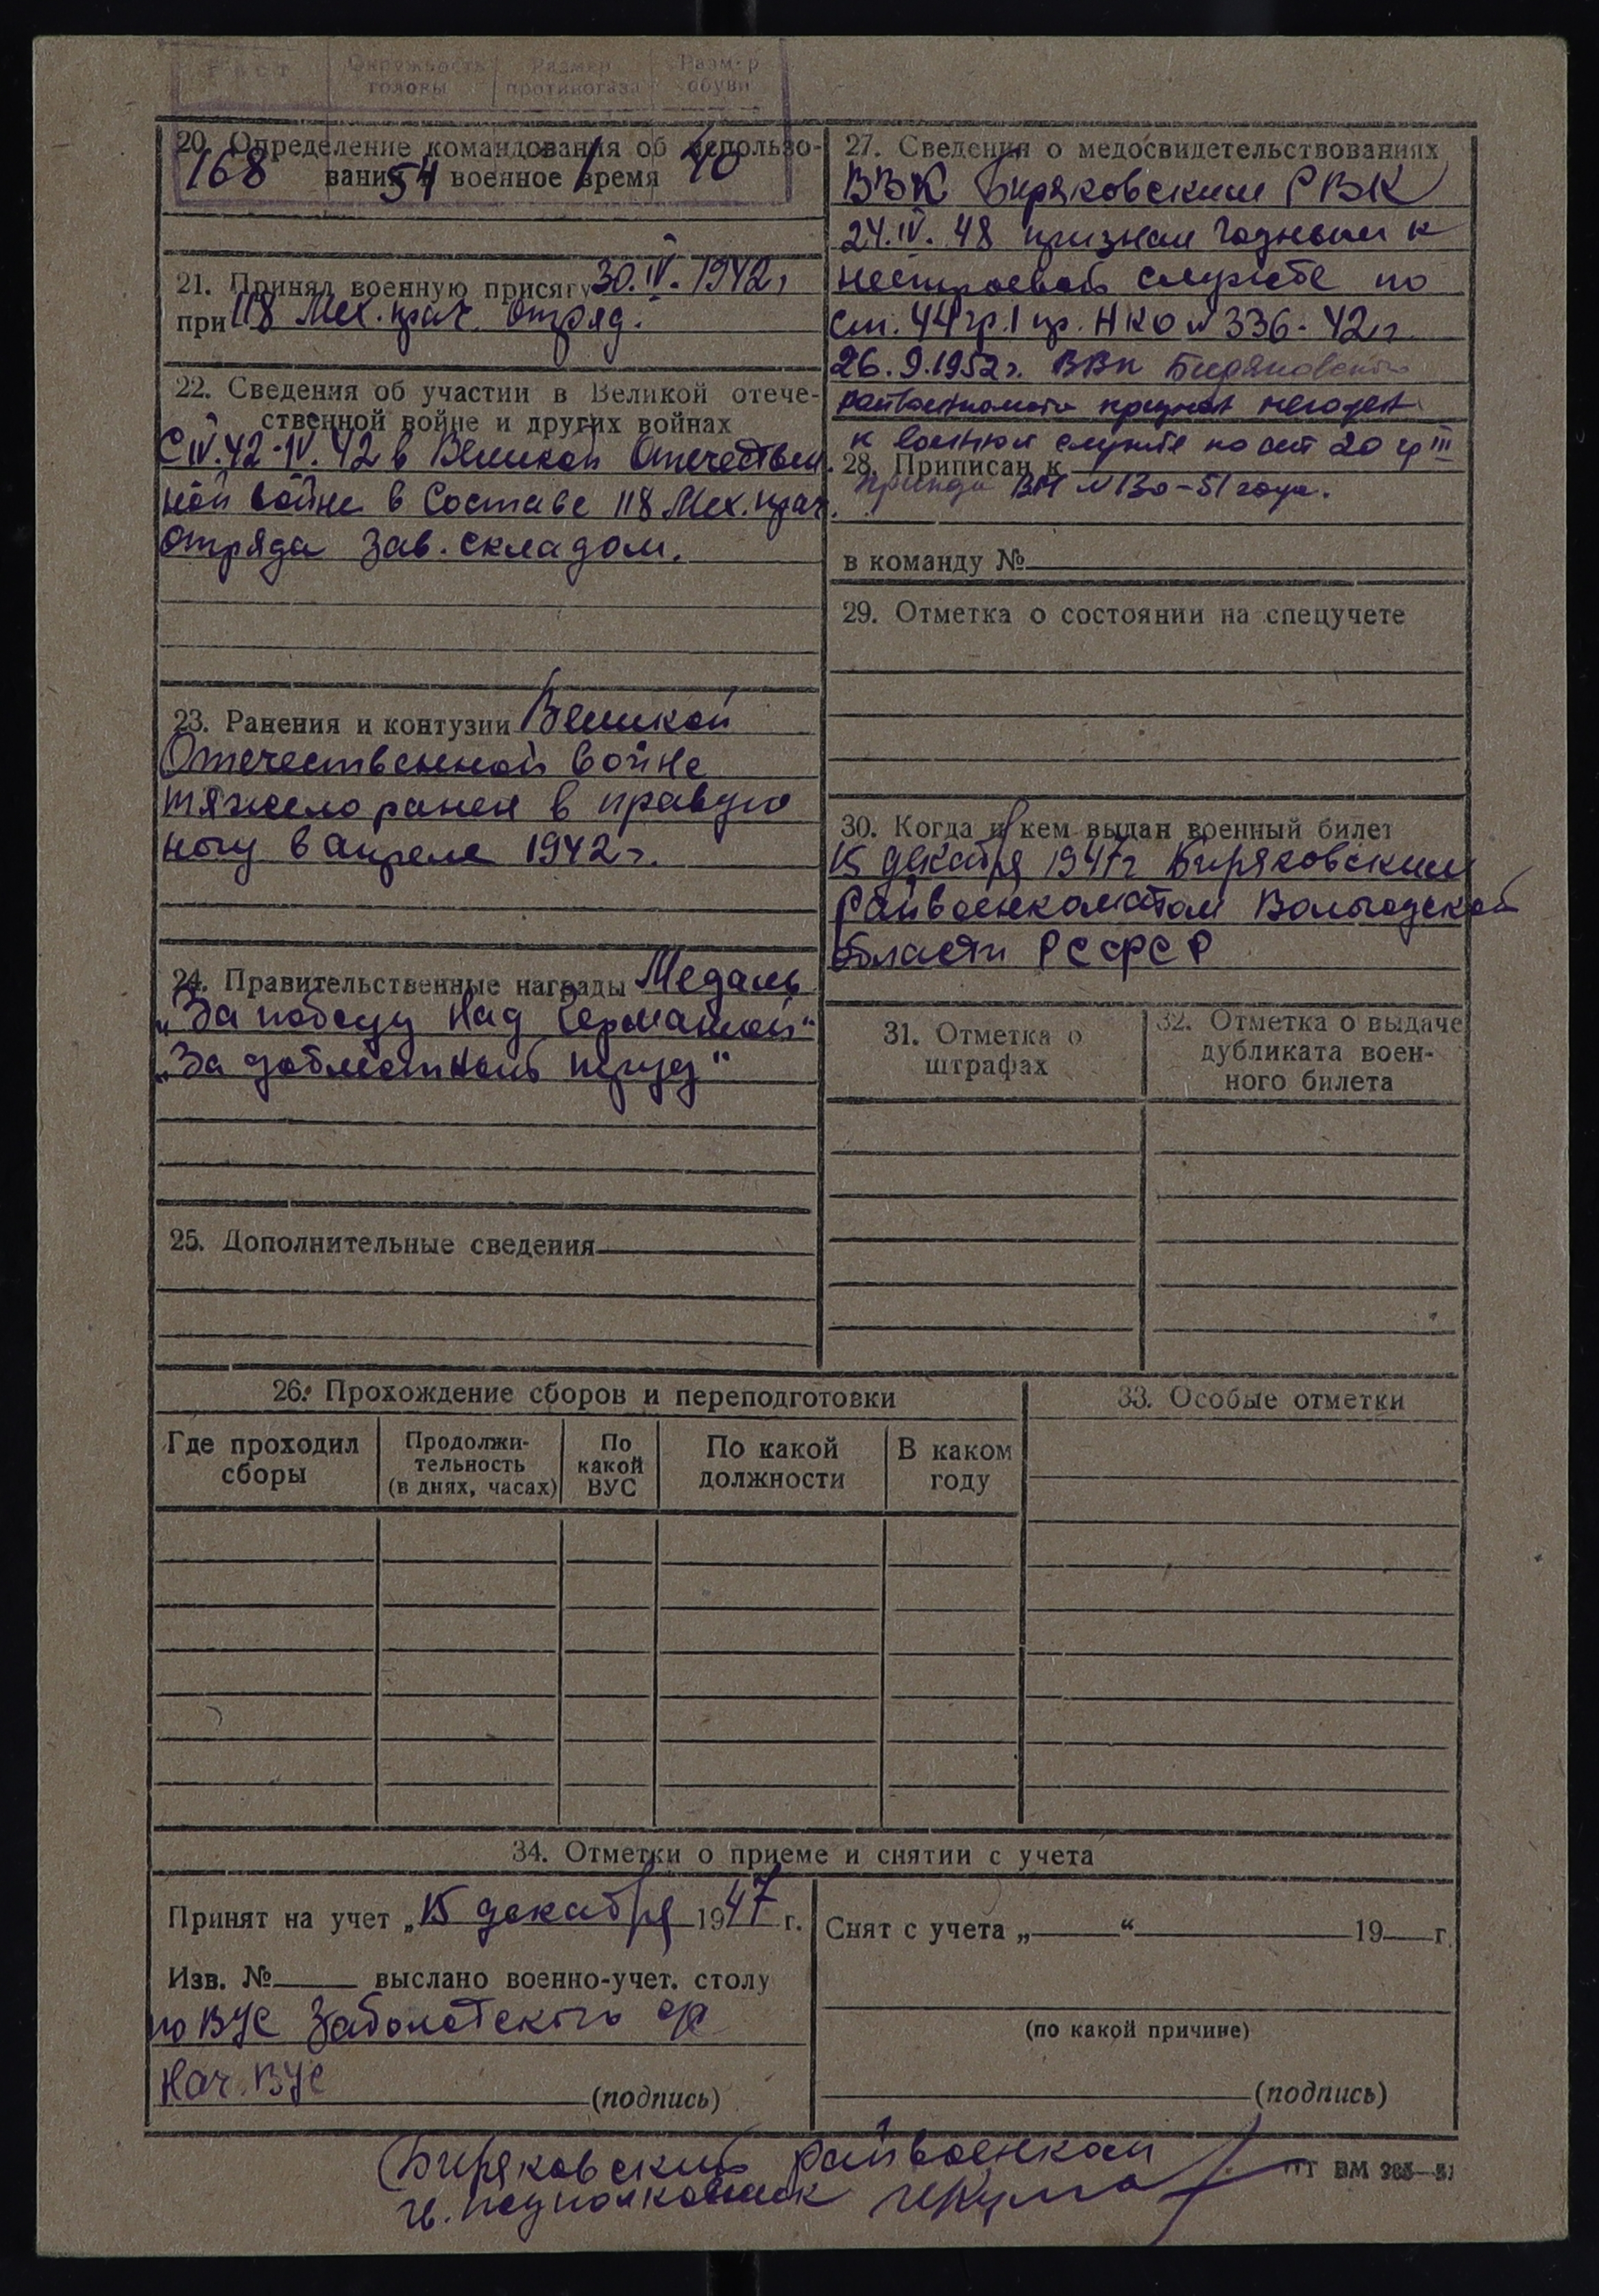 Рост Окружность головы Размер противогаза Размер обуви
168 54 1 40
20. Определение командования об использо-
вании в военное время
21. Принял военную присягу 30.IV.1942г
при 118 Мех. прач. отряд.
22. Сведения об участии в Великой отече-
ственной войне и других войнах
С IV.42-IV.42 в Великой Отечествен.
ной войне в Составе 118 Мех. прач.
отряда Зав. складом.
23. Ранения и контузии Великой
Отечественной войне
тяжело ранен в правую
ногу в апреле 1942 г.
24. Правительственные награды Медаль
„За победу над Германией“
„За доблестный труд“
25. Дополнительные сведения
27. Сведения о медосвидетельствованиях
ВВК Биряковским РВК
24.IV.48 признан годным к
нестроевой службе по
ст. 44 гр. I пр. НКО № 336-42г.
26.9.1952г. ВВк Биряковского
райвоенкомата признан негоден
к военной службе по ст 20 гр III
приказа ВМ № 130-51 года.
28. Приписан к
в команду №
29. Отметка о состоянии на спецучете
30. Когда и кем выдан военный билет
15 декабря 1947г Биряковским
Райвоенкоматом Вологодской
области РСФСР
31. Отметка о
штрафах
32. Отметка о выдаче
дубликата воен-
ного билета
26. Прохождение сборов и переподготовки
Где проходил сборы Продолжи-тельность (в днях, часах) По какой ВУС По какой должности В каком году
33. Особые отметки
34. Отметки о приеме и снятии с учета
Принят на учет „15 декабря 1947 г.
Изв. № выслано военно-учет. столу
по ВУС Заболотского с/с
Нач. ВУС (подпись)
Снят с учета „ “ 19 г.
(по какой причине)
(подпись)
Биряковский райвоенком
гв. подполковник